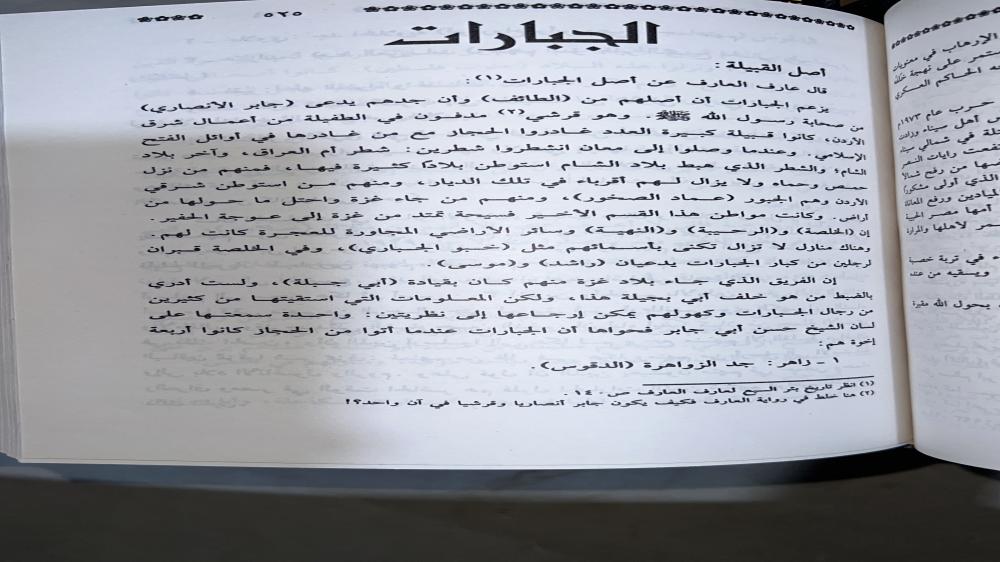 ٥٢٥
الجبارات
أصل القبيلة :
قال عارف العارف عن أصل الجبارات(١) :
يزعم الجبارات أن أصلهم من (الطائف) وأن جدهم يدعى (جابر الأنصاري)
من صحابة رسول الله ﷺ. وهو قرشي(٢) مدفون في الطفيلة من أعمال شرق
الأردن، كانوا قبيلة كبيرة العدد غادروا الحجاز مع من غادرها في أوائل الفتح
الإسلامي. وعندما وصلوا إلى معان انشطروا شطرين: شطر أم العراق، وآخر بلاد
الشام؛ والشطر الذي هبط بلاد الشام استوطن بلادًا كثيرة فيها، فمنهم من نزل
حمص وحماه ولا يزال لهم أقرباء في تلك الديار، ومنهم من استوطن شرقي
الأردن وهم الجبور (عماد الصخور)، ومنهم من جاء غزة واحتل ما حولها من
أراض. وكانت مواطن هذا القسم الأخير فسيحة تمتد من غزة إلى عوجة الحفير.
إن (الخلصة) و(الرحيبة) و(النهية) وسائر الأراضي المجاورة للعجرة كانت لهم.
وهناك منازل لا تزال تكنى بأسمائهم مثل (خبو الجباري)، وفي الخلصة قبران
لرجلين من كبار الجبارات يدعيان (راشد) و(موسى).
إن الفريق الذي جاء بلاد غزة منهم كان بقيادة (أبي جبلة)، ولست أدري
بالضبط من هو خلف أبي بجيلة هذا، ولكن المعلومات التي استقيتها من كثيرين
من رجال الجبارات وكهولهم يمكن إرجاعها إلى نظريتين: واحدة سمعتها على
لسان الشيخ حسن أبي جابر فحواها أن الجبارات عندما أتوا من الحجاز كانوا أربعة
إخوة هم:
١ - زاهر: جد الزواهرة (الدقوس).
(١) انظر تاريخ بئر السبع لعارف العارف ص ١٤٠.
(٢) هنا خلط في رواية العارف فكيف يكون جابر أنصاريا وقرشيا في آن واحد؟!
الإرهاب في معنويات
حرب عام ١٩٧٣م